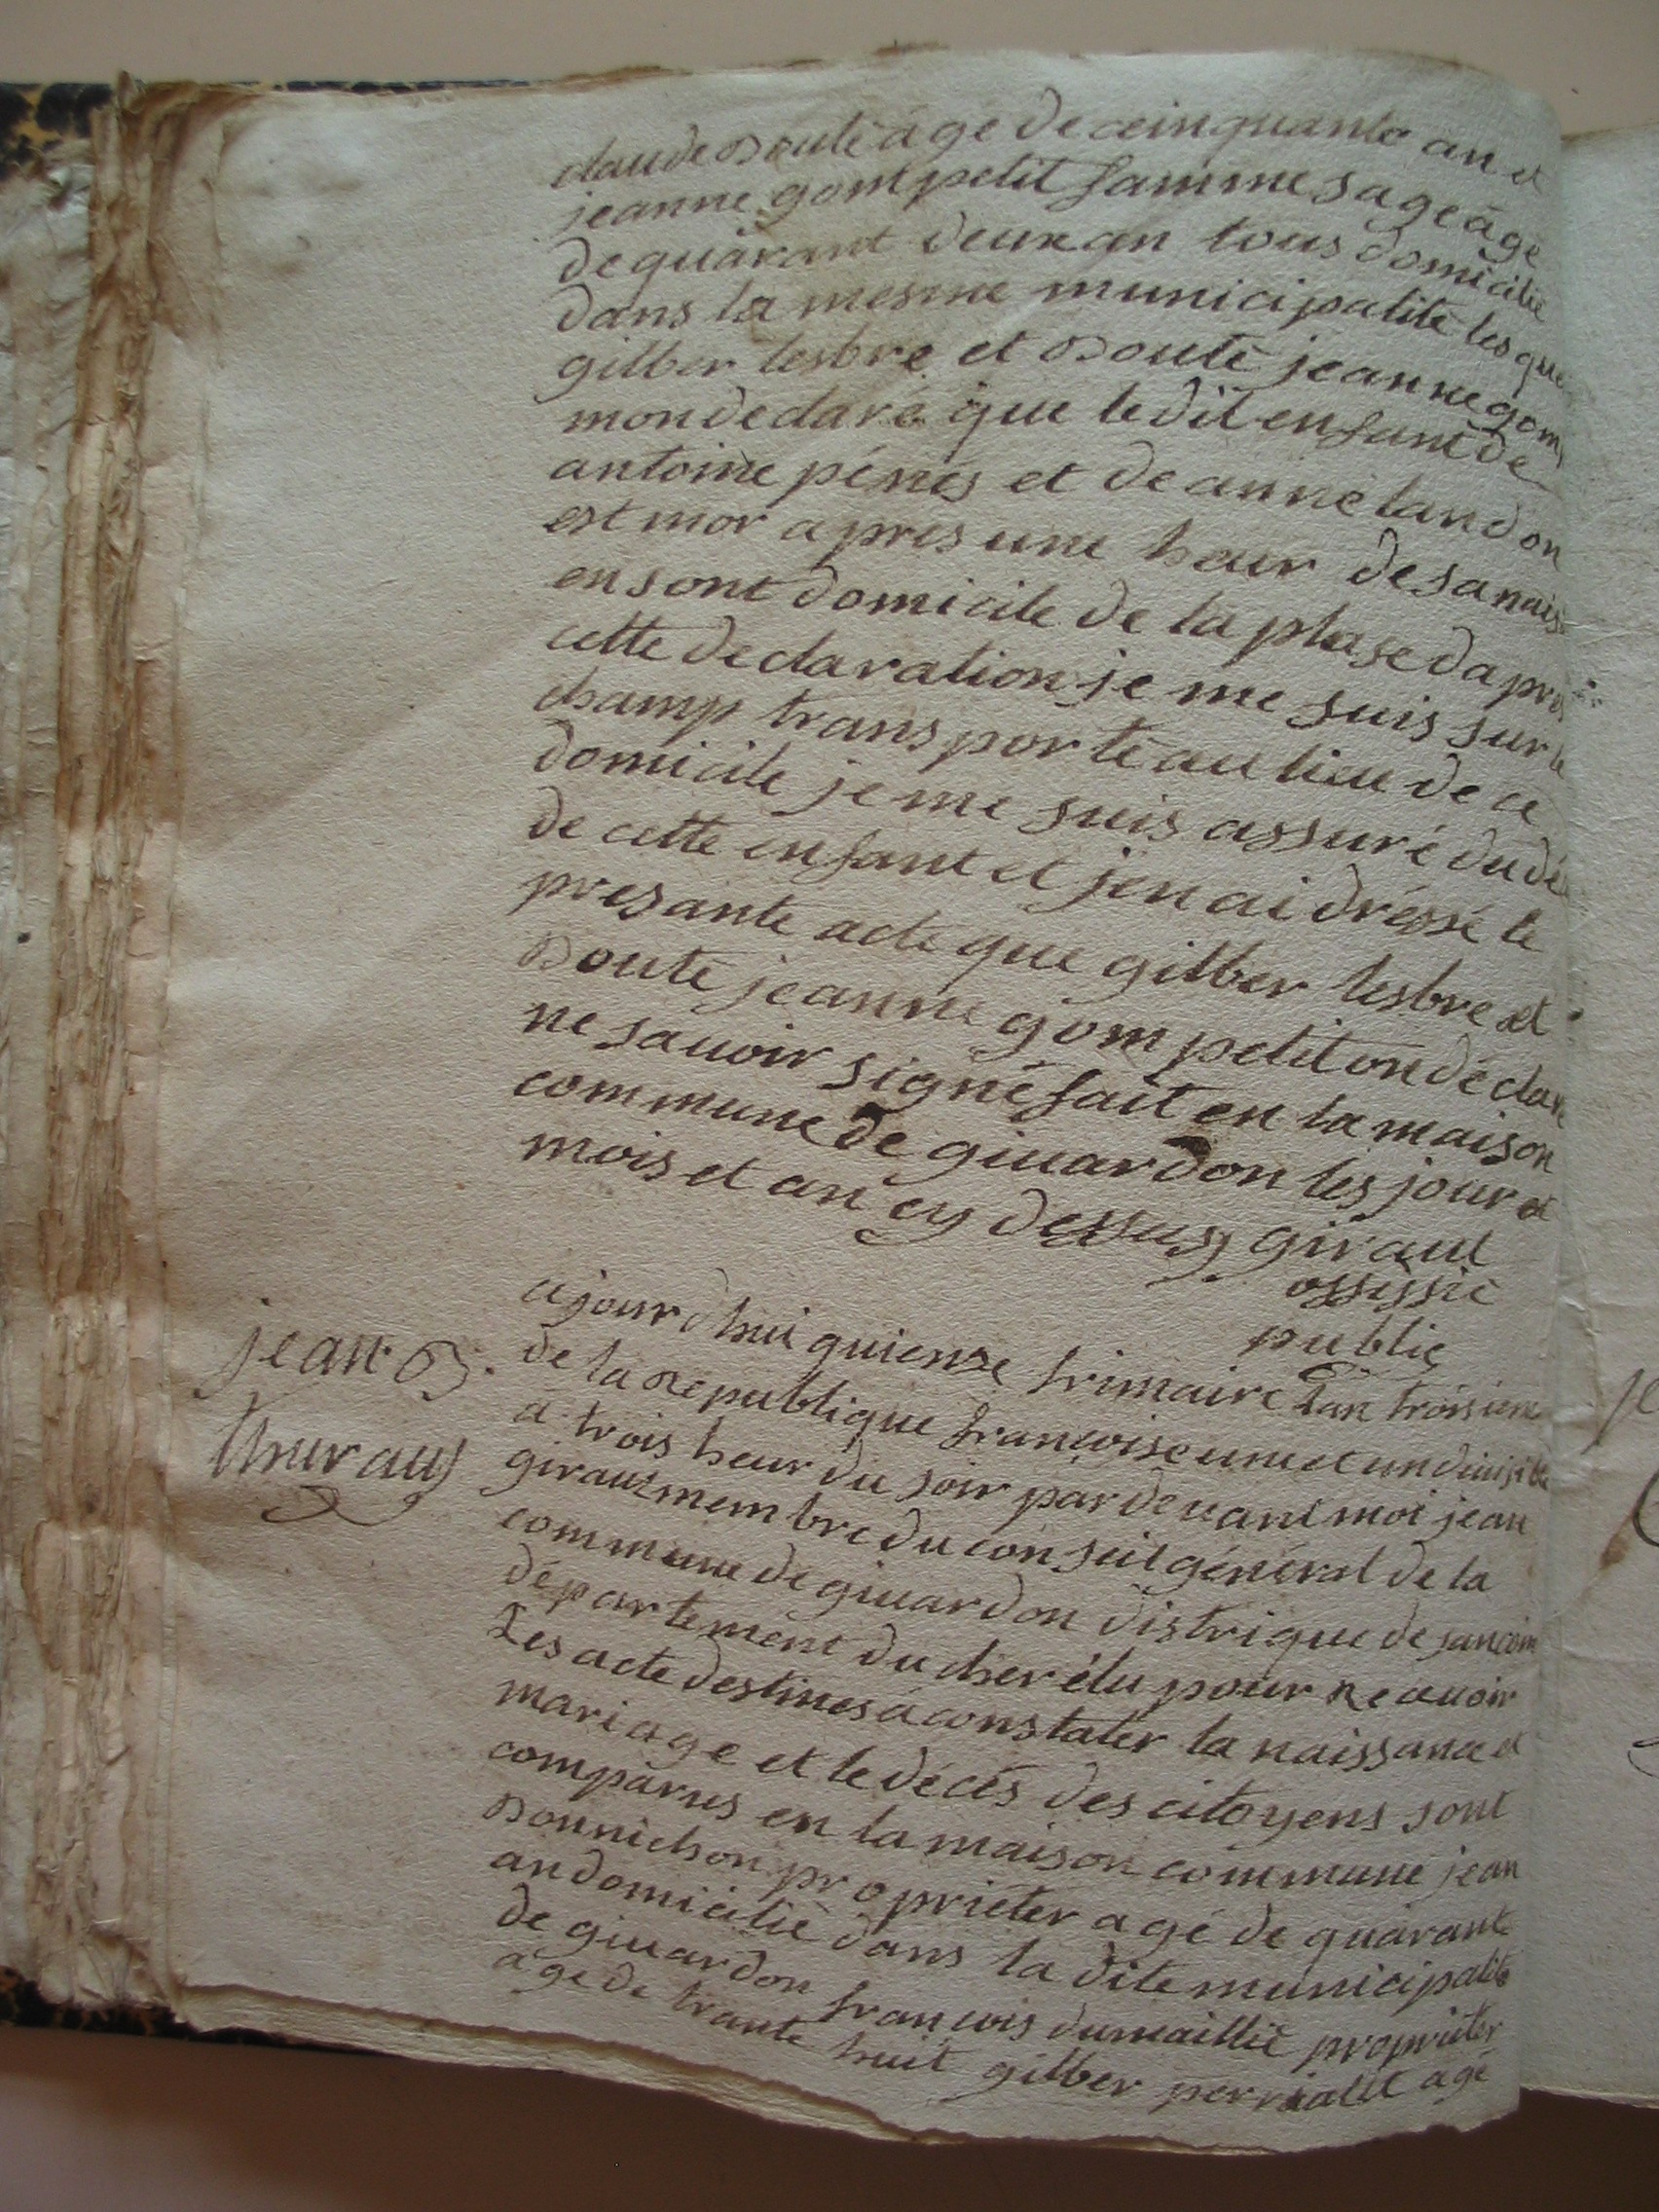 claude Bouté àgé de ceinquante an et
jeanne gompetit famme sage àgé
de quárant deux an tous domicilié
dans la mesme municipalité les que
gilber lesbre et Bouté jeanne gom
mon declaré que ledit enfant de
antoine pénés et de anne landon
est mor apres une heur de sa nais
en sont domicile de la plase dapres
cette declaration je me suis sur le
champ transporté au lieu de ce
domicile je me suis assuré du dé
de cette enfant et jen ai dressé le
presante acte que gilber lesbre et
Bouté jeanne gompetit on déclaré
ne sauoir signé fait en la maison
commune de giuardon les jour et
mois et an cy dessus giraut
offissié
public
ajourdhui quiense frimaire Lan troisieme
de la Republique françoise une et undiuisible
a trois heur du soir par deuant moi jean
giraut membre du conseil général de la
commune de giuardon distrique de sancoin
département du cher élu pour Receuoir
Les acte destines à constater la naissance et
mariage et le décés des citoyens sont
comparus en la maison commune jean
Bonnichon propriéter agé de quárante
an domicilié dans la dite municipalité
de giuardon françois dumaillié propriéter
agé de trante huit gilber perriaut agé
jean B.
thuraus